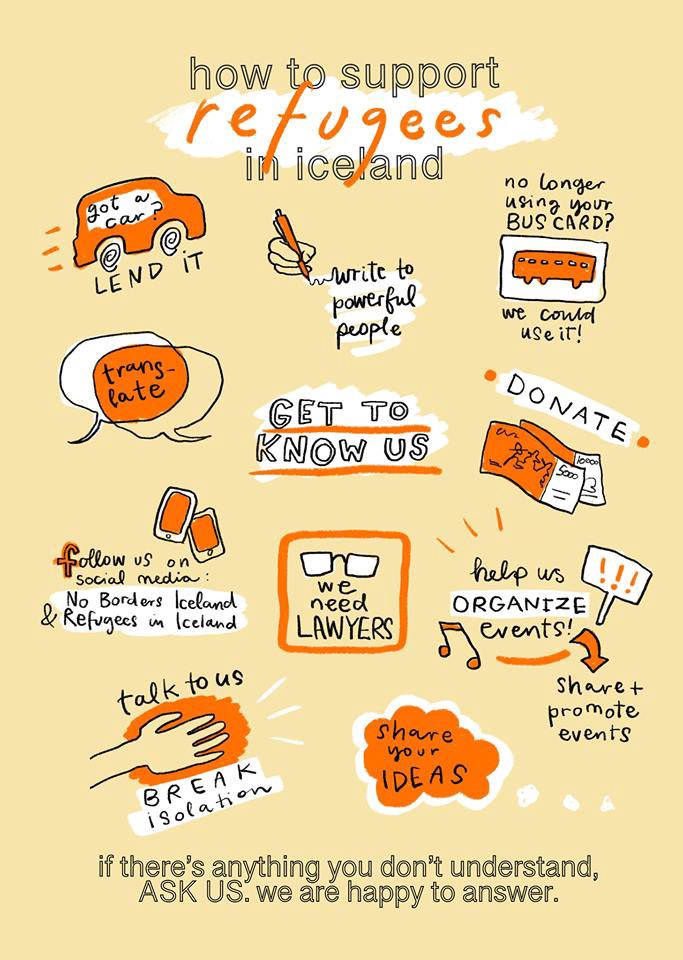 how to support
refugees
in iceland
got a
car?
LEND IT
write to
powerful
people
no longer
using your
BUS CARD?
we could
use it!
trans-
late
GET TO
KNOW US
DONATE
5000
10000
follow us on
social media:
No Borders Iceland
& Refugees in Iceland
we
need
LAWYERS
help us
ORGANIZE
events!
!!!
share +
promote
events
talk to us
BREAK
isolation
share
your
IDEAS
if there's anything you don't understand,
ASK US. we are happy to answer.